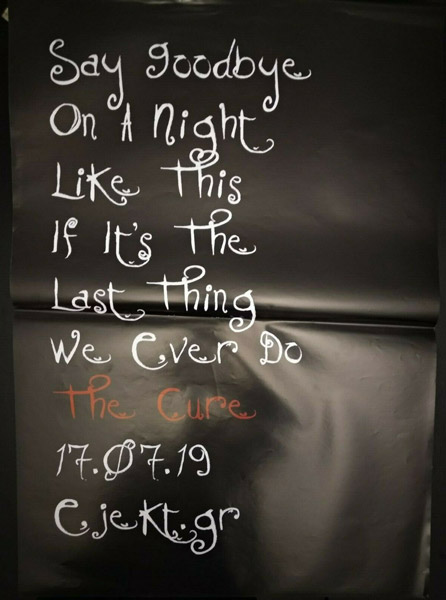 Say goodbye
On A Night
Like This
If It's The
Last Thing
We Ever Do
The Cure
17.Ø7.19
Ejekt.gr